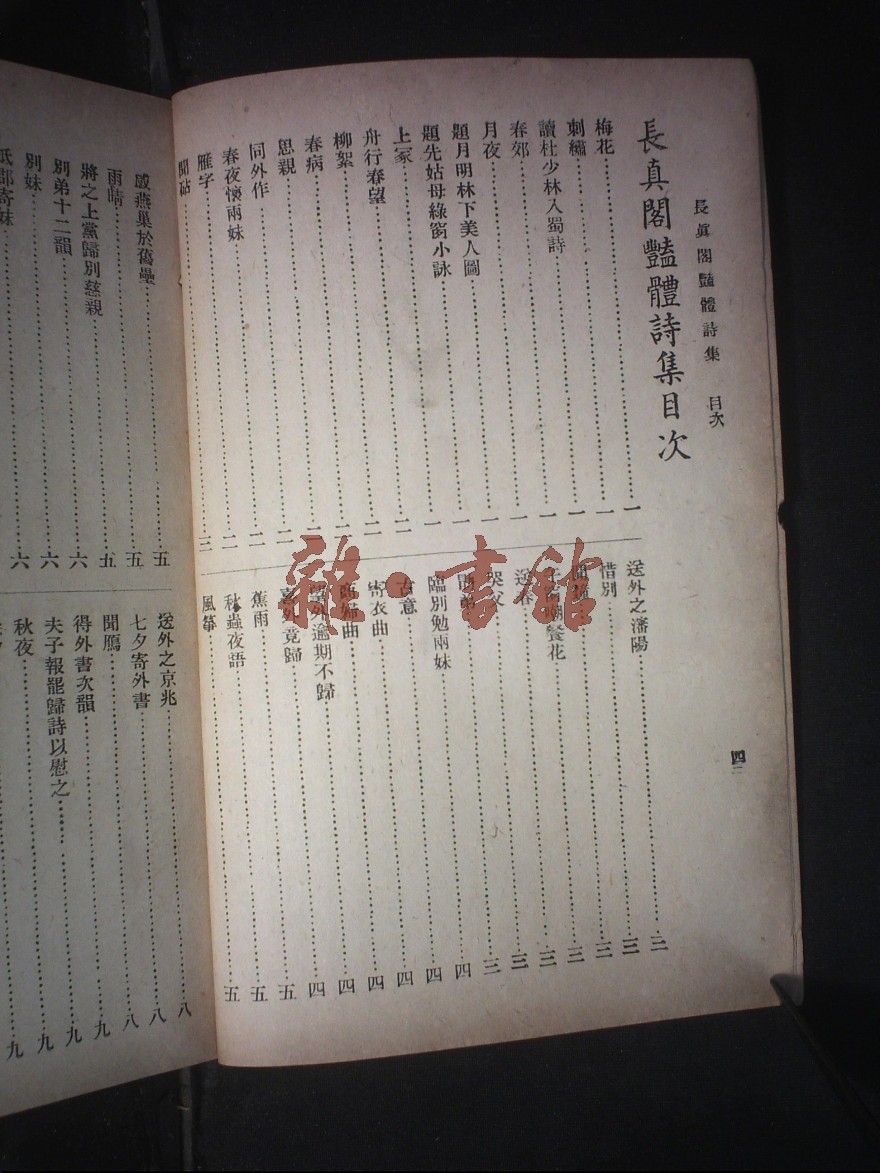 長眞閣豔體詩集 目次
四二
長真閣豔體詩集目次
梅花……一
刺繡……一
讀杜少林入蜀詩……一
春郊……一
月夜……一
題月明林下美人圖……一
題先姑母綠窗小詠……一
上冢……二
舟行春望……二
柳絮……二
春病……二
思親……二
同外作……二
春夜懷兩妹……二
雁字……三
聞砧
送外之瀋陽……三
惜別……三
餐花……三
送春……三
哭父……三
弟……四
臨別勉兩妹……四
古意……四
寄衣曲……四
歸曲……四
望外逾期不歸……四
喜外竟歸……五
蕉雨……五
秋蟲夜語……五
風箏
感燕巢於舊壘……五
雨晴……五
將之上黨歸別慈親……六
別弟十二韻……六
別妹……六
寄妹
送外之京兆……八
七夕寄外書……八
聞鴈……八
得外書次韻……九
夫子報罷歸詩以慰之……九
秋夜……九
九
雜·書館